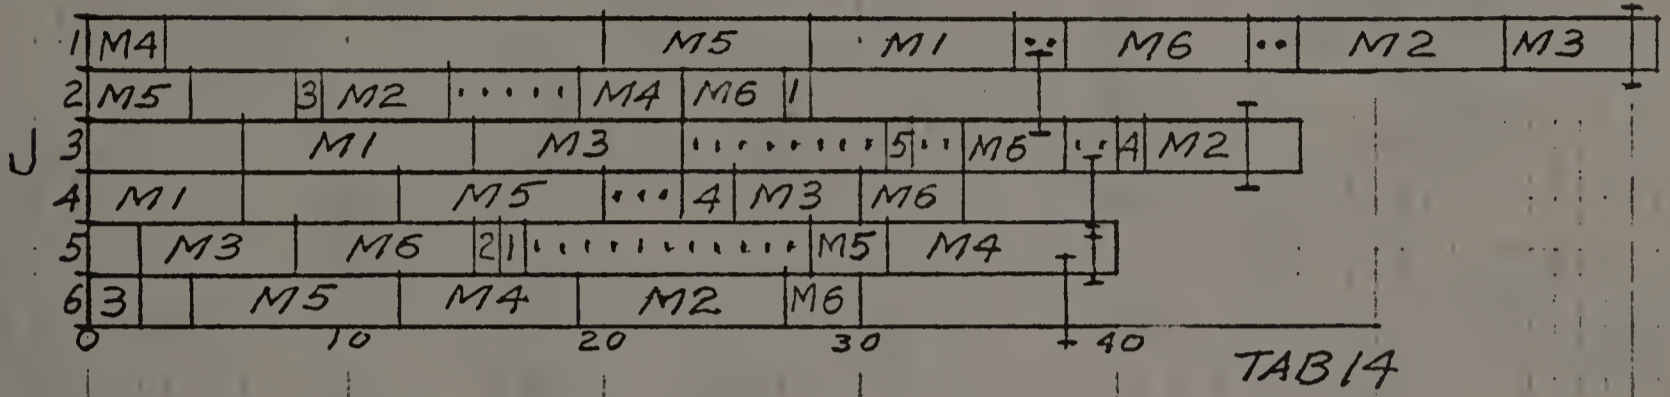 1 M4 M5 M1 M6 M2 M3
2 M5 3 M2 M4 M6 1
J
3 M1 M3 5 M6 4 M2
4 M1 M5 4 M3 M6
5 M3 M6 2 1 M5 M4
6 3 M5 M4 M2 M6
0 10 20 30 40
TAB 14